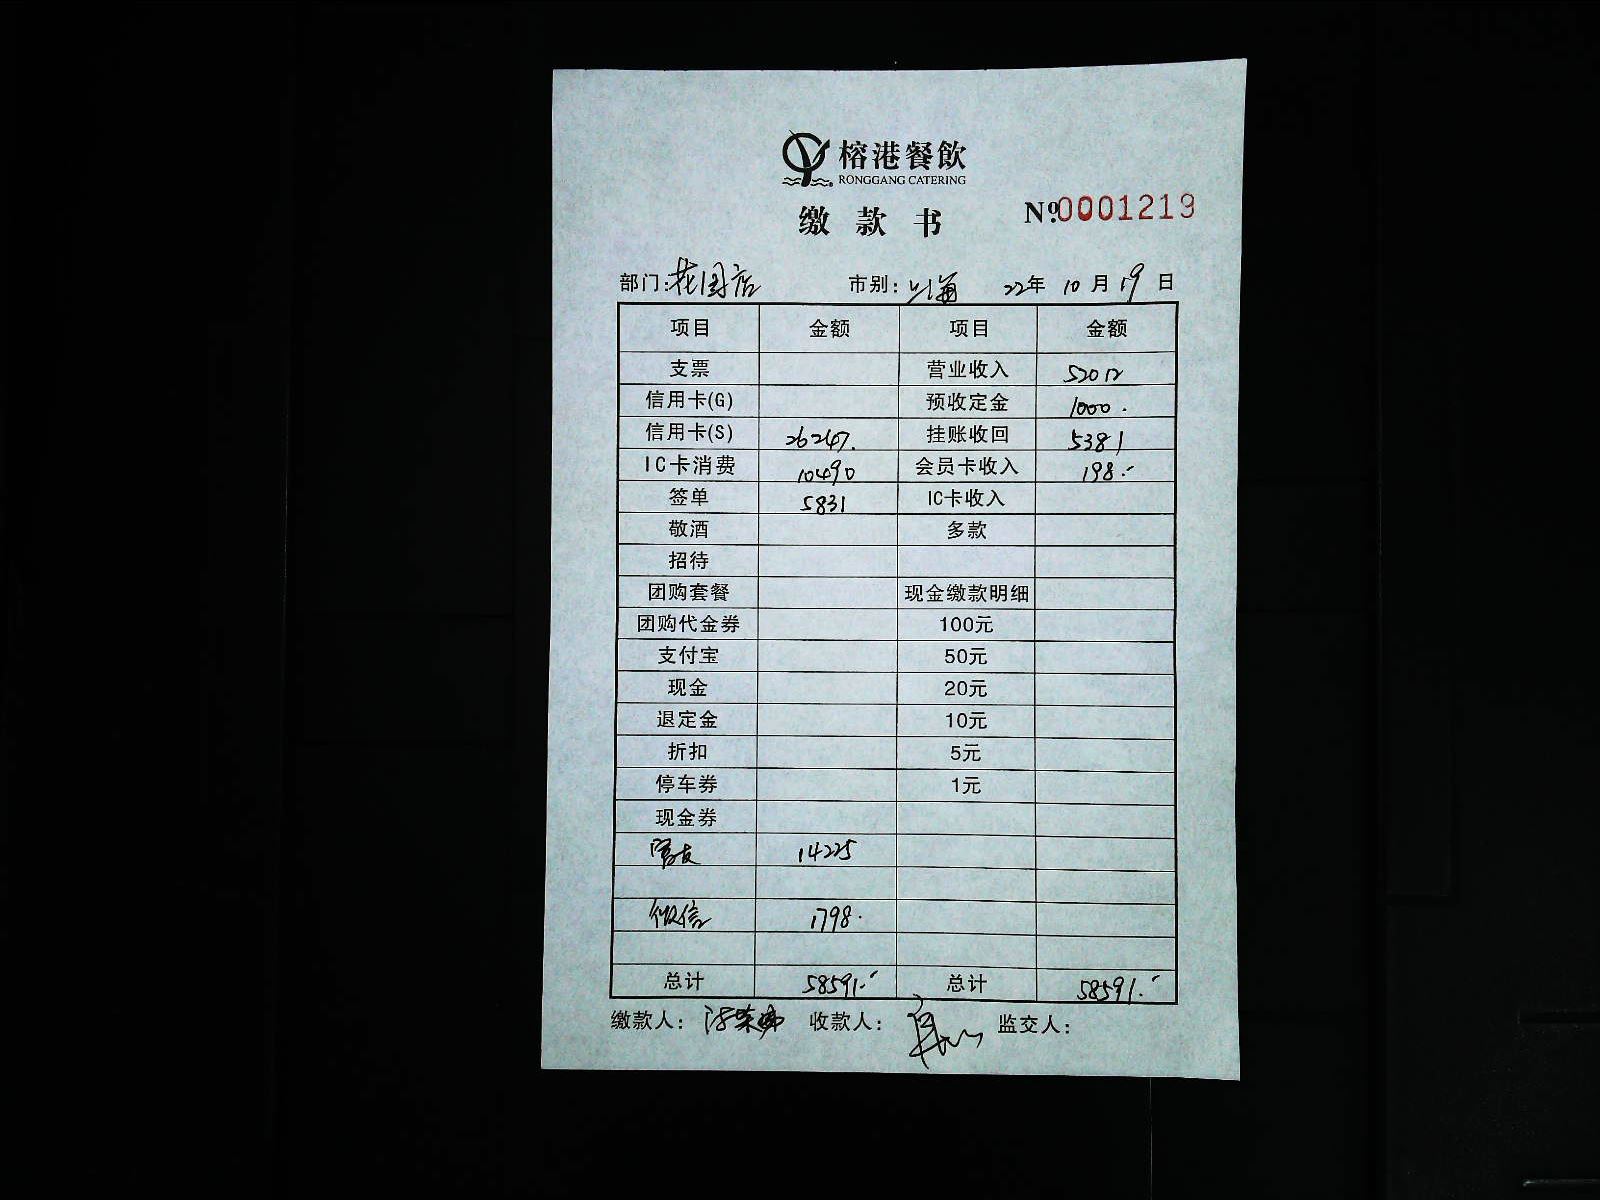 榕港餐飲
RONGGANG CATERING
缴款书 №:0001219
部门:花园店 市别:上海 22年 10月 19日
项目 金额 项目 金额
支票 营业收入 52012
信用卡(G) 预收定金 1000.
信用卡(S) 26247. 挂账收回 5381
IC卡消费 10490 会员卡收入 198.-
签单 5831 IC卡收入
敬酒 多款
招待
团购套餐 现金缴款明细
团购代金券 100元
支付宝 50元
现金 20元
退定金 10元
折扣 5元
停车券 1元
现金券
14225
微信 1798.
总计 58591.- 总计 58591.-
缴款人: 收款人: 监交人: